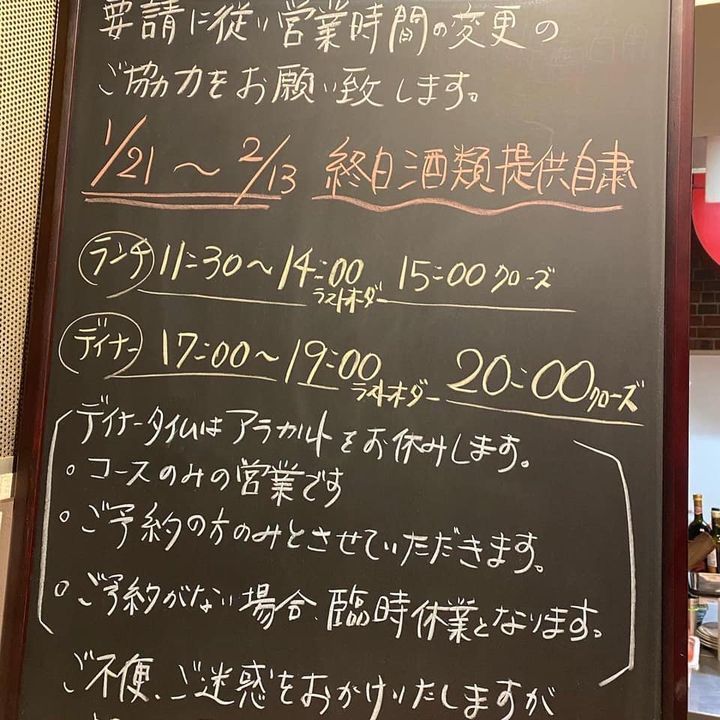 要請に従い営業時間の変更の
ご協力をお願い致します。
1/21〜2/13 終日酒類提供自粛
ランチ 11:30〜14:00 ラストオーダー 15:00クローズ
ディナー 17:00〜19:00 ラストオーダー 20:00クローズ
ディナータイムはアラカルトをお休みします。
・コースのみの営業です
・ご予約の方のみとさせていただきます。
・ご予約がない場合、臨時休業となります。
ご不便、ご迷惑をおかけいたしますが